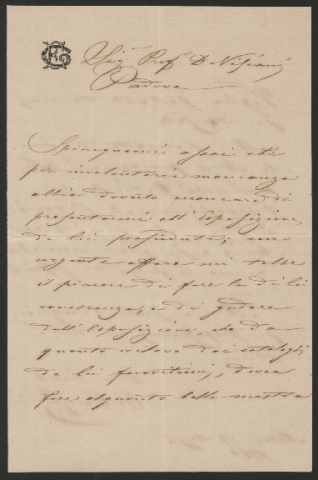 Sig. Prof. De Visiani
Padova
Spiacquemi assai che
per involontaria mancanza
abbia dovuto mancare di
presentarmi all'Esposizione,
da lei presieduta; un
urgente affare mi tolse
il piacere di fare la di lei
conoscenza, e di godere
dell'Esposizione, che da
quanto rilevo dai cataloghi
da lei favoritimi, dovea
fare alquanto bella mostra